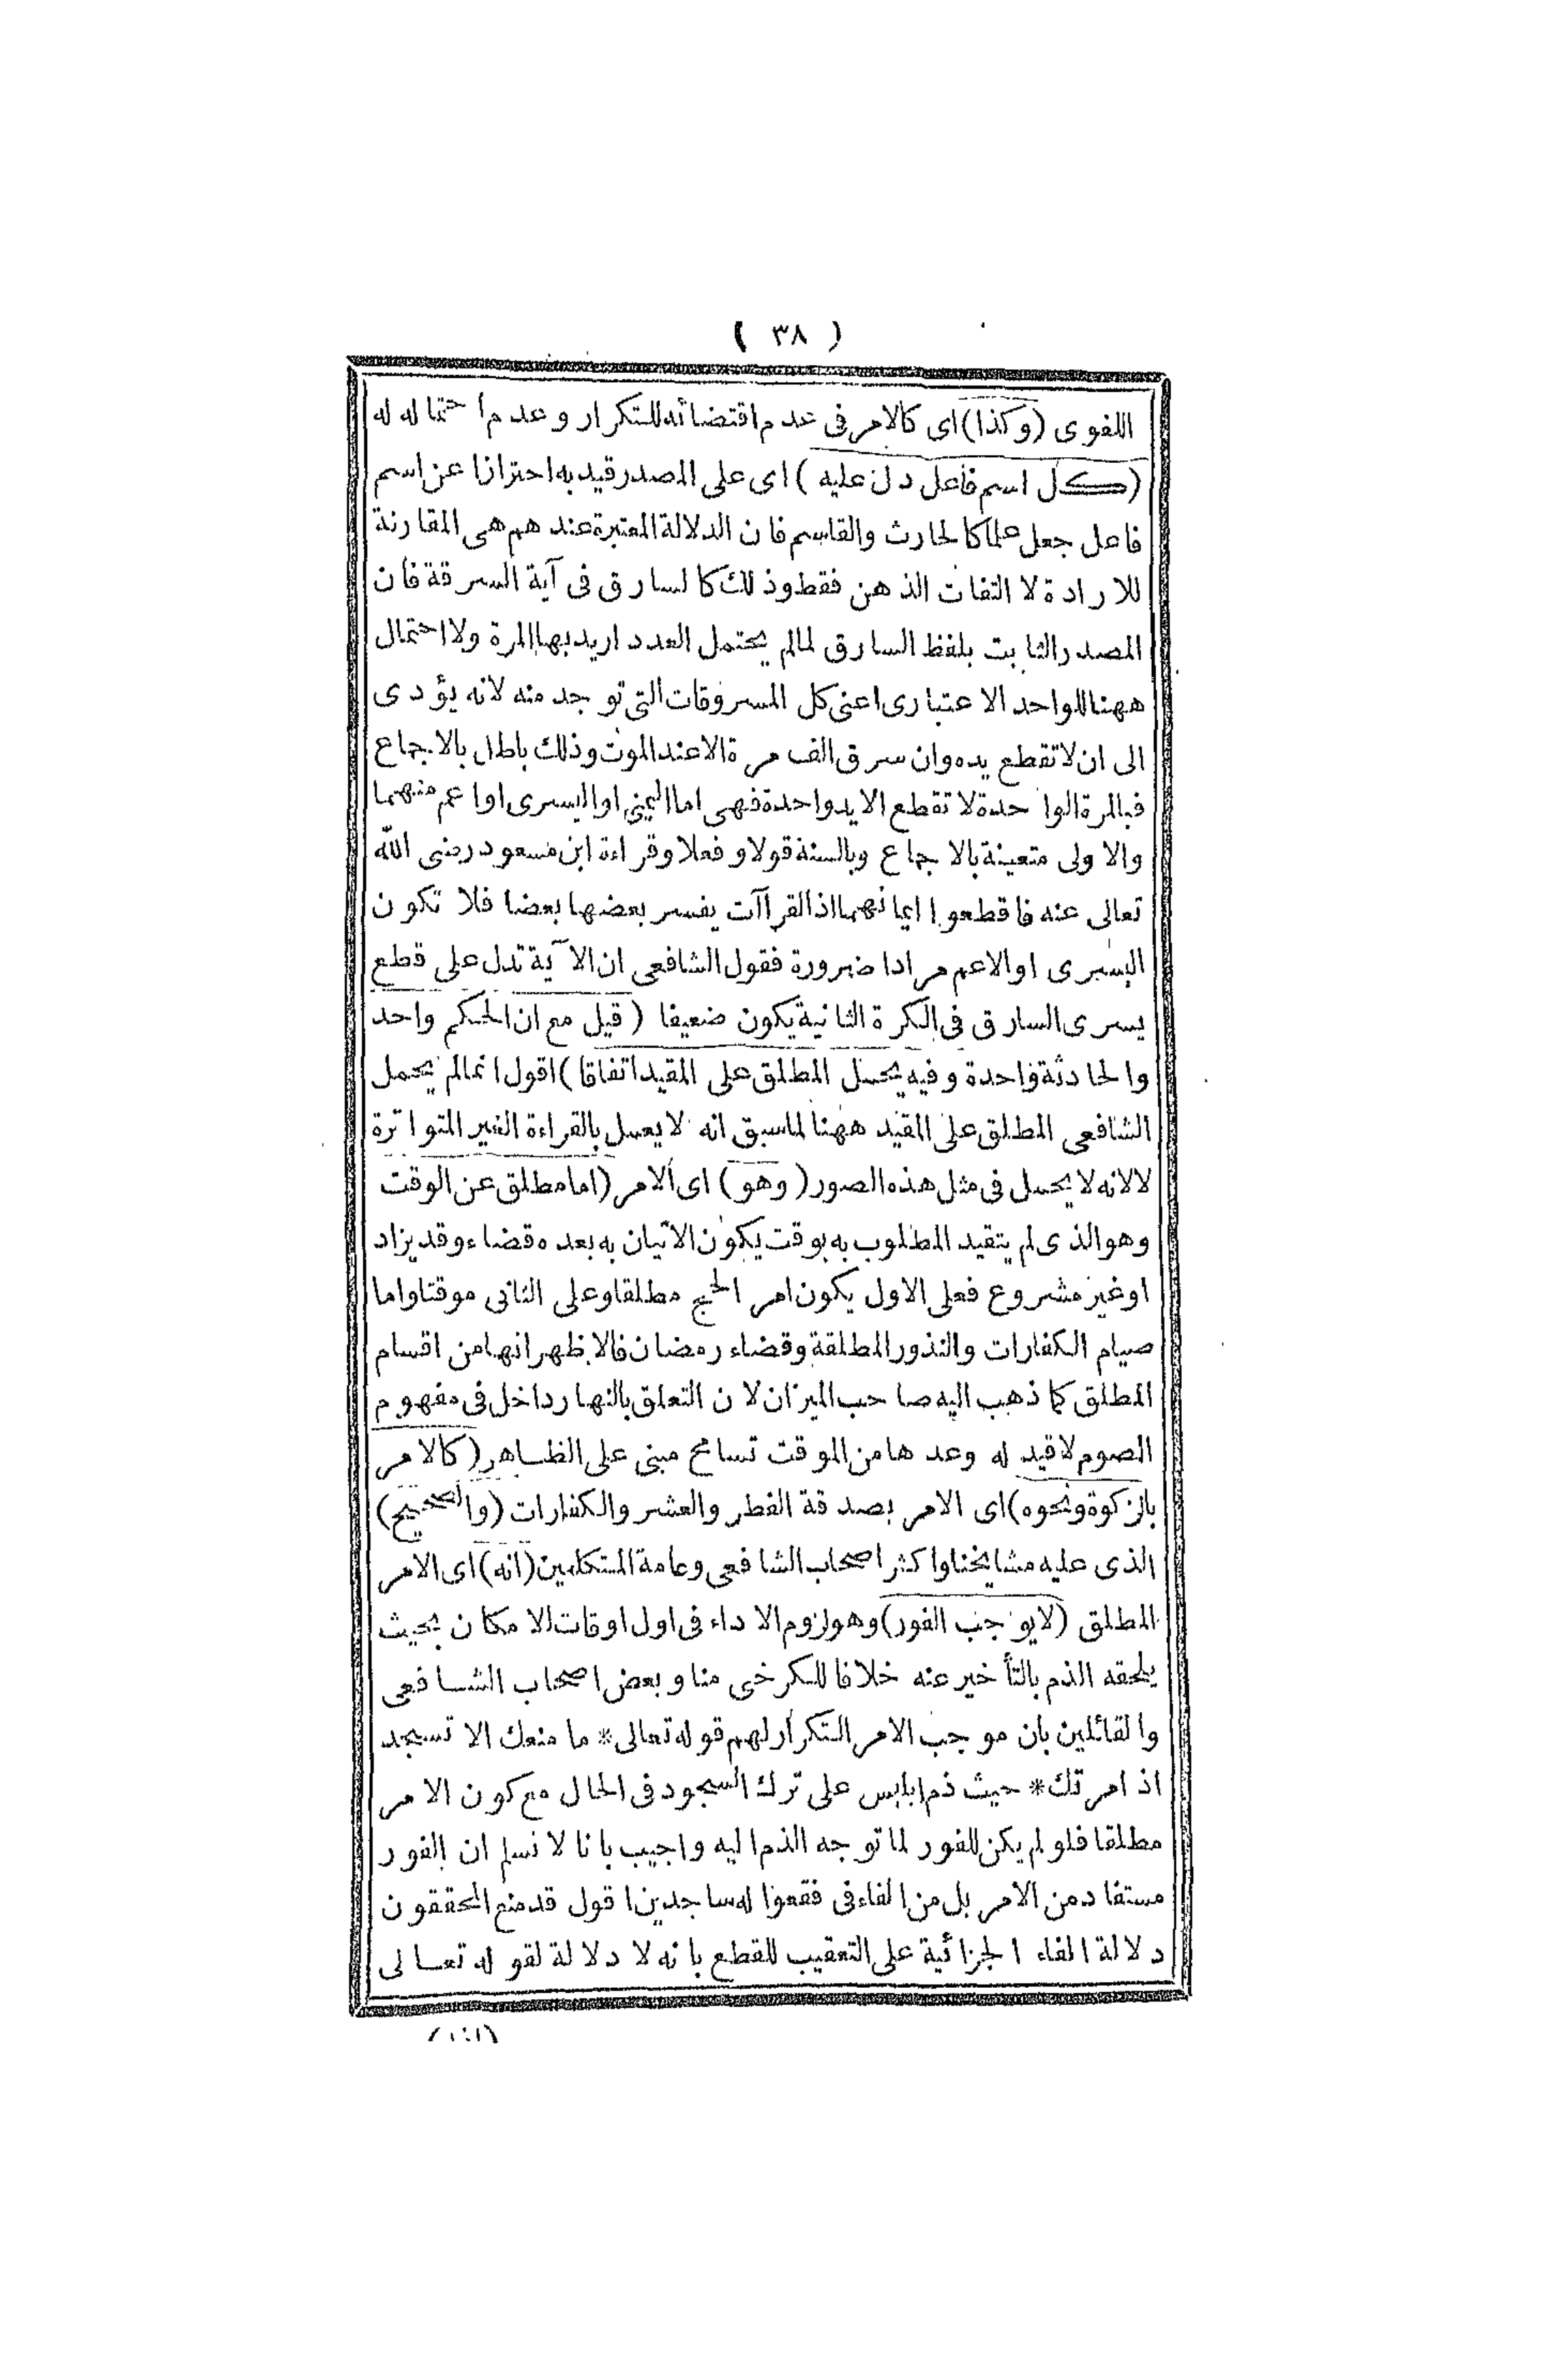 ( ٣٨ )
اللغوى (وكذا) اى كالامر فى عدم اقتضائه للتكرار وعدم احتماله له
(كل اسم فاعل دل عليه ) اى على المصدر قيد به احترازا عن اسم
فاعل جعل علما كالحارث والقاسم فان الدلالة المعتبرة عندهم هى المقارنة
للارادة لا التفات الذهن فقط وذلك كالسارق فى آية السرقة فان
المصدر الثابت بلفظ السارق لمالم يحتمل العدد اريد بها المرة ولا احتمال
ههنا للواحد الاعتبارى اعنى كل المسروقات التى توجد منه لانه يؤدى
الى ان لا تقطع يده وان سرق الف مرة الا عند الموت وذلك باطل بالاجماع
فبالمرة الواحدة لا تقطع الا يد واحدة فهى اما اليمنى او اليسرى او اعم منهما
والاولى متعينة بالاجماع وبالسنة قولا وفعلا وقراءة ابن مسعود رضى الله
تعالى عنه فاقطعوا ايمانهما اذ القراآت يفسر بعضها بعضا فلا تكون
اليسرى او الاعم مرادا ضرورة فقول الشافعى ان الآية تدل على قطع
يسرى السارق فى الكرة الثانية يكون ضعيفا ( قيل مع ان الحكم واحد
والحادثة واحدة وفيه يحمل المطلق على المقيد اتفاقا ) اقول انما لم يحمل
الشافعى المطلق على المقيد ههنا لما سبق انه لا يعمل بالقراءة الغير المتواترة
لا لانه لا يحمل فى مثل هذه الصور ( وهو ) اى الامر ( اما مطلق عن الوقت
وهو الذى لم يتقيد المطلوب به بوقت يكون الاتيان به بعده قضاء وقد يزاد
او غير مشروع فعلى الاول يكون امر الحج مطلقا وعلى الثانى موقتا واما
صيام الكفارات والنذور المطلقة وقضاء رمضان فالاظهر انها من اقسام
المطلق كما ذهب اليه صاحب الميزان لان التعلق بالنهار داخل فى مفهوم
الصوم لا قيد له وعدها من الموقت تسامح مبنى على الظاهر ( كالامر
بالزكوة ونحوه ) اى الامر بصدقة الفطر والعشر والكفارات ( والصحيح )
الذى عليه مشايخنا واكثر اصحاب الشافعى وعامة المتكلمين ( انه ) اى الامر
المطلق ( لا يوجب الفور ) وهو لزوم الاداء فى اول اوقات الامكان بحيث
يلحقه الذم بالتأخير عنه خلافا للكرخى منا وبعض اصحاب الشافعى
والقائلين بان موجب الامر التكرار لهم قوله تعالى * ما منعك الا تسجد
اذ امرتك * حيث ذم ابليس على ترك السجود فى الحال مع كون الامر
مطلقا فلو لم يكن للفور لما توجه الذم اليه واجيب بانا لا نسلم ان الفور
مستفاد من الامر بل من الفاء فى فقعوا له ساجدين اقول قد منع المحققون
دلالة الفاء الجزائية على التعقيب للقطع بانه لا دلالة لقوله تعالى